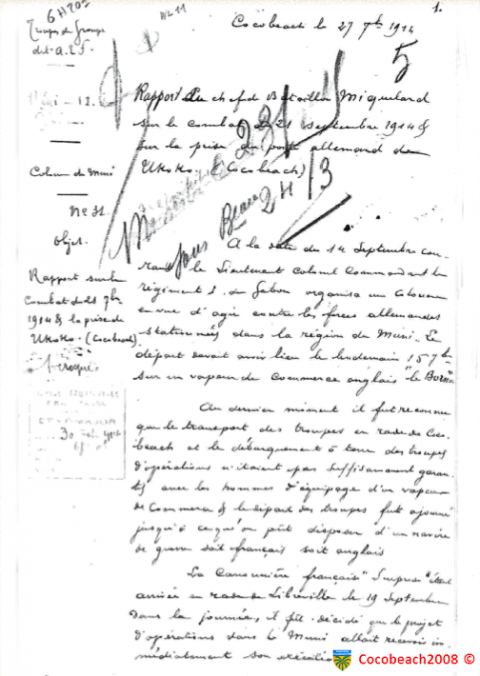 6 H 202
1.
Cocobeach le 27 7bre 1914
Troupes du Groupe
de l'A.E.F.
5
Rapport du chef de Bataillon Miquelard
sur le combat du 21 Septembre 1914 &
sur la prise du poste allemand de
Ukoko. (Cocobeach)
Colonne du Muni
No 31
Objet.
Rapport sur le
combat du 21 7bre
1914 & la prise de
Ukoko. (Cocobeach)
A la date du 14 Septembre cou-
rant le Lieutenant Colonel Commandant le
régiment du Gabon organisa une colonne
en vue d'agir contre les forces allemandes
stationnées dans la région du Muni. Le
départ devait avoir lieu le lendemain 15 7bre
sur un vapeur de commerce anglais "le
Au dernier moment il fut reconnu
que le transport des troupes en rade de Coco-
beach et le débarquement à terre des troupes
d'opérations n'étaient pas suffisamment garan-
tis avec les hommes d'équipage d'un vapeur
de commerce & le départ des troupes fut ajourné
jusqu'à ce qu'on pût disposer d'un navire
de guerre soit français soit anglais
La Canonnière française "Surprise" étant
arrivée en rade de Libreville le 19 Septembre
dans la journée, il fût décidé que le projet
d'opérations dans le Muni allait recevoir im-
médiatement son exécution
Cocobeach2008 ©